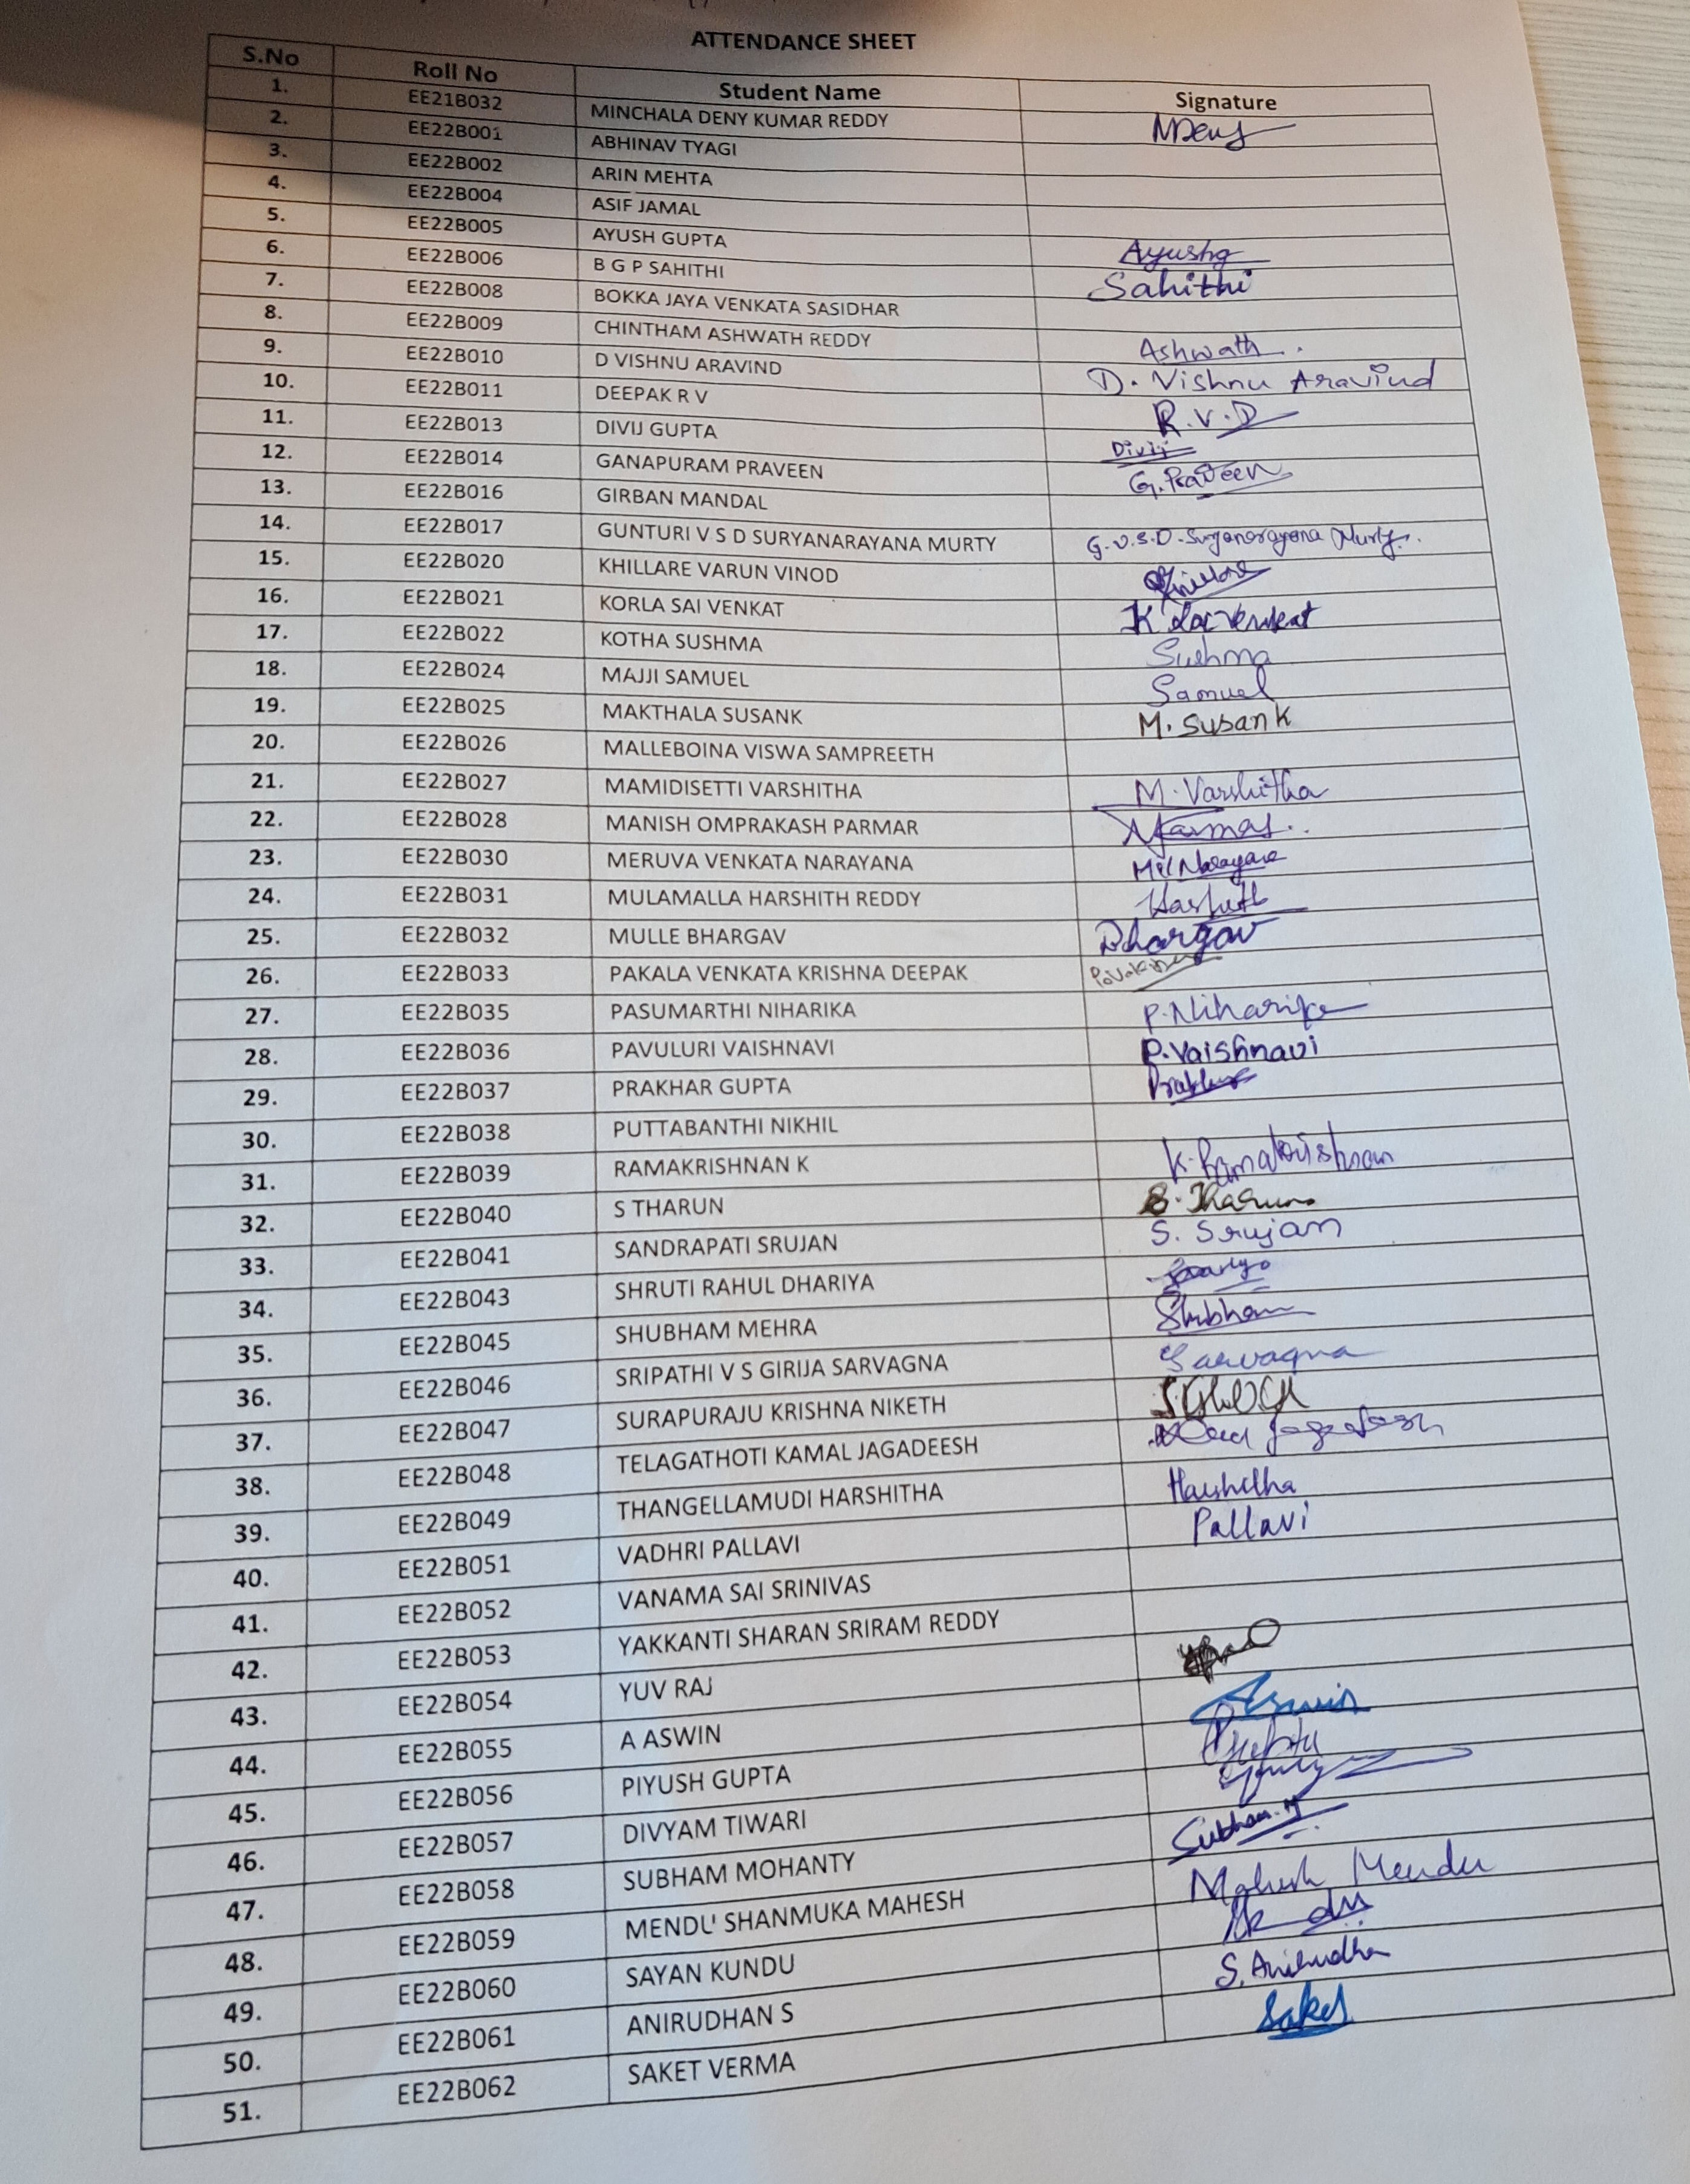 ATTENDANCE SHEET
S.No Roll No Student Name Signature
1. EE21B032 MINCHALA DENY KUMAR REDDY MDeny
2. EE22B001 ABHINAV TYAGI
3. EE22B002 ARIN MEHTA
4. EE22B004 ASIF JAMAL
5. EE22B005 AYUSH GUPTA Ayushg
6. EE22B006 B G P SAHITHI Sahithi
7. EE22B008 BOKKA JAYA VENKATA SASIDHAR
8. EE22B009 CHINTHAM ASHWATH REDDY Ashwath.
9. EE22B010 D VISHNU ARAVIND D. Vishnu Aravind
10. EE22B011 DEEPAK R V R.V.D
11. EE22B013 DIVIJ GUPTA Divij
12. EE22B014 GANAPURAM PRAVEEN G.Praveen
13. EE22B016 GIRBAN MANDAL
14. EE22B017 GUNTURI V S D SURYANARAYANA MURTY G.V.S.D.Suryanarayana Murty.
15. EE22B020 KHILLARE VARUN VINOD
16. EE22B021 KORLA SAI VENKAT K Sai Venkat
17. EE22B022 KOTHA SUSHMA Sushma
18. EE22B024 MAJJI SAMUEL Samuel
19. EE22B025 MAKTHALA SUSANK M. Susank
20. EE22B026 MALLEBOINA VISWA SAMPREETH
21. EE22B027 MAMIDISETTI VARSHITHA M.Varshitha
22. EE22B028 MANISH OMPRAKASH PARMAR
23. EE22B030 MERUVA VENKATA NARAYANA Narayana
24. EE22B031 MULAMALLA HARSHITH REDDY Harshith
25. EE22B032 MULLE BHARGAV Bhargav
26. EE22B033 PAKALA VENKATA KRISHNA DEEPAK
27. EE22B035 PASUMARTHI NIHARIKA P.Niharika
28. EE22B036 PAVULURI VAISHNAVI P.Vaishnavi
29. EE22B037 PRAKHAR GUPTA Prakhar
30. EE22B038 PUTTABANTHI NIKHIL
31. EE22B039 RAMAKRISHNAN K K.Ramakrishnan
32. EE22B040 S THARUN S.Tharun
33. EE22B041 SANDRAPATI SRUJAN S. Srujan
34. EE22B043 SHRUTI RAHUL DHARIYA
35. EE22B045 SHUBHAM MEHRA Shubham
36. EE22B046 SRIPATHI V S GIRIJA SARVAGNA Sarvagna
37. EE22B047 SURAPURAJU KRISHNA NIKETH
38. EE22B048 TELAGATHOTI KAMAL JAGADEESH Jagadeesh
39. EE22B049 THANGELLAMUDI HARSHITHA Harshitha
40. EE22B051 VADHRI PALLAVI Pallavi
41. EE22B052 VANAMA SAI SRINIVAS
42. EE22B053 YAKKANTI SHARAN SRIRAM REDDY
43. EE22B054 YUV RAJ
44. EE22B055 A ASWIN Aswin
45. EE22B056 PIYUSH GUPTA
46. EE22B057 DIVYAM TIWARI
47. EE22B058 SUBHAM MOHANTY Subham.M
48. EE22B059 MENDU SHANMUKA MAHESH Mahesh Mendu
49. EE22B060 SAYAN KUNDU
50. EE22B061 ANIRUDHAN S S.Anirudhan
51. EE22B062 SAKET VERMA Saket